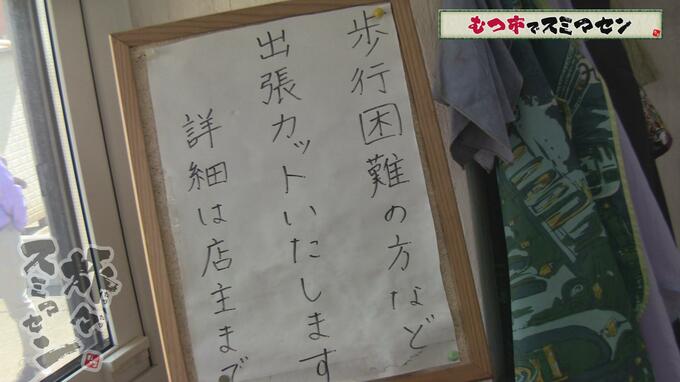 むつ市でスミマセン
歩行困難の方など
出張カットいたします
詳細は店主まで
旅からスミマセン